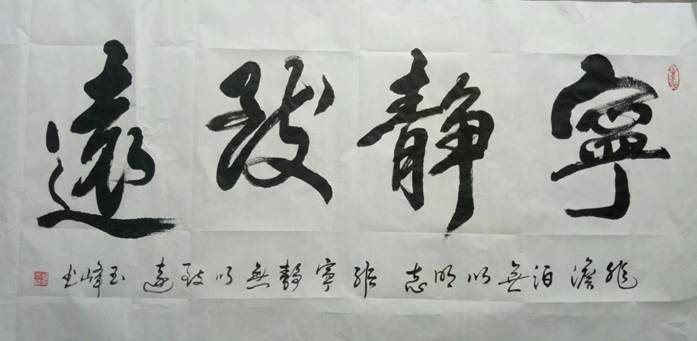 寧靜致遠
非澹泊無以明志 非寧靜無以致遠 玉峰书